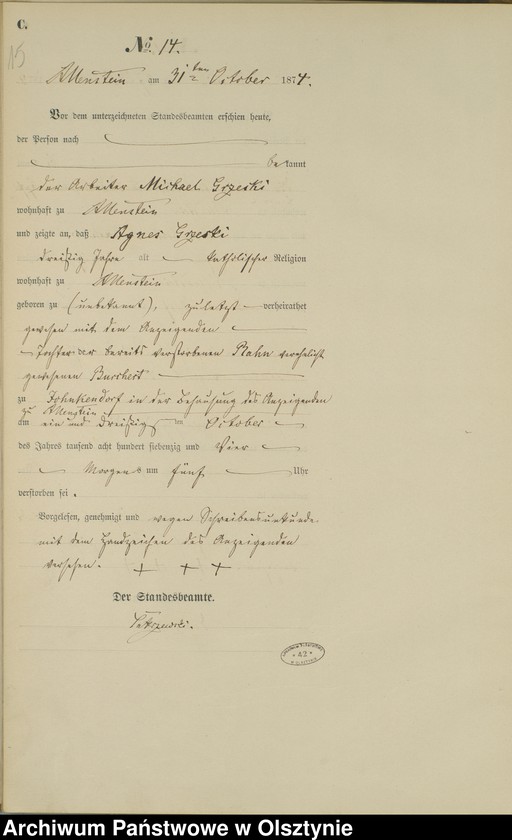 C.
15
No. 14.
Allenstein am 31ten October 1874.
Vor dem unterzeichneten Standesbeamten erschien heute,
der Person nach
bekannt
der Arbeiter Michael Grzeski
wohnhaft zu Allenstein
und zeigte an, daß Agnes Grzeski
dreißig Jahre alt katholischer Religion
wohnhaft zu Allenstein
geboren zu (unbekannt), zuletzt verheirathet
gewesen mit dem Anzeigenden
Tochter der bereits verstorbenen verehelicht
gewesenen
zu in der Behausung des Anzeigenden
zu Allenstein
am ein und dreißigsten October
des Jahres tausend acht hundert siebenzig und Vier
Morgens um fünf Uhr
verstorben sei.
Vorgelesen, genehmigt und wegen Schreibensunkunde
mit dem Handzeichen des Anzeigenden
versehen. + + +
Der Standesbeamte.
42
Archiwum Państwowe w Olsztynie